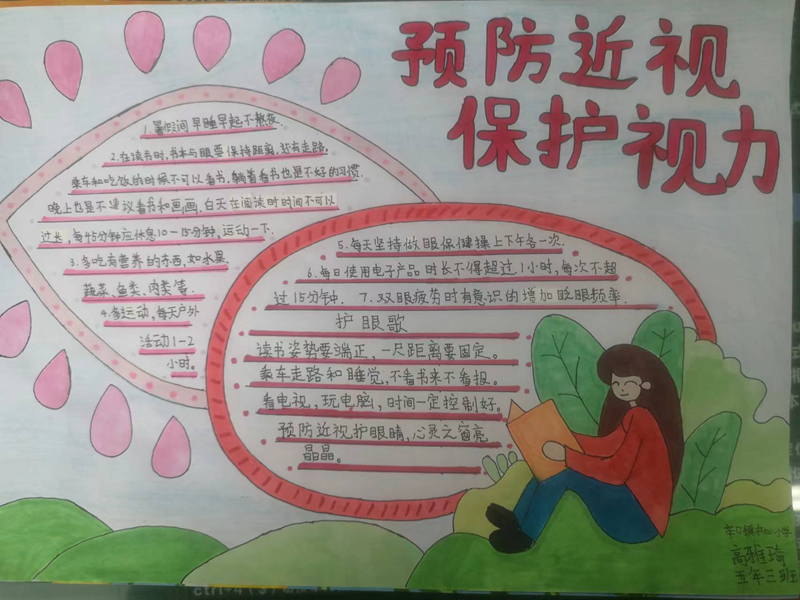 预防近视
保护视力
1.暑假间早睡早起不熬夜.
2.在读书时,书本与眼要保持距离,还有走路,
乘车和吃饭的时候不可以看书.躺着看书也是不好的习惯.
晚上也是不建议看书和画画.白天在阅读时时间不可以
过长,每45分钟应休息10-15分钟,运动一下.
3.多吃有营养的东西,如水果、
蔬菜、鱼类、肉类等.
4.多运动,每天户外
活动1-2
小时。
5.每天坚持做眼保健操上下午各一次.
6.每日使用电子产品时长不得超过1小时,每次不超
过15分钟. 7.双眼疲劳时有意识的增加眨眼频率.
护眼歌
读书姿势要端正,一尺距离要固定。
乘车走路和睡觉,不看书来不看报。
看电视,玩电脑,时间一定控制好。
预防近视护眼睛,心灵之窗亮
晶晶。
镇中心小学
高雅琦
五年三班
ctrl+